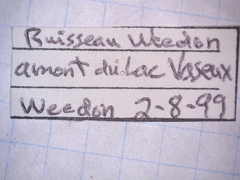 Ruisseau Weedon
amont du Lac Vaseux
Weedon 2-8-99